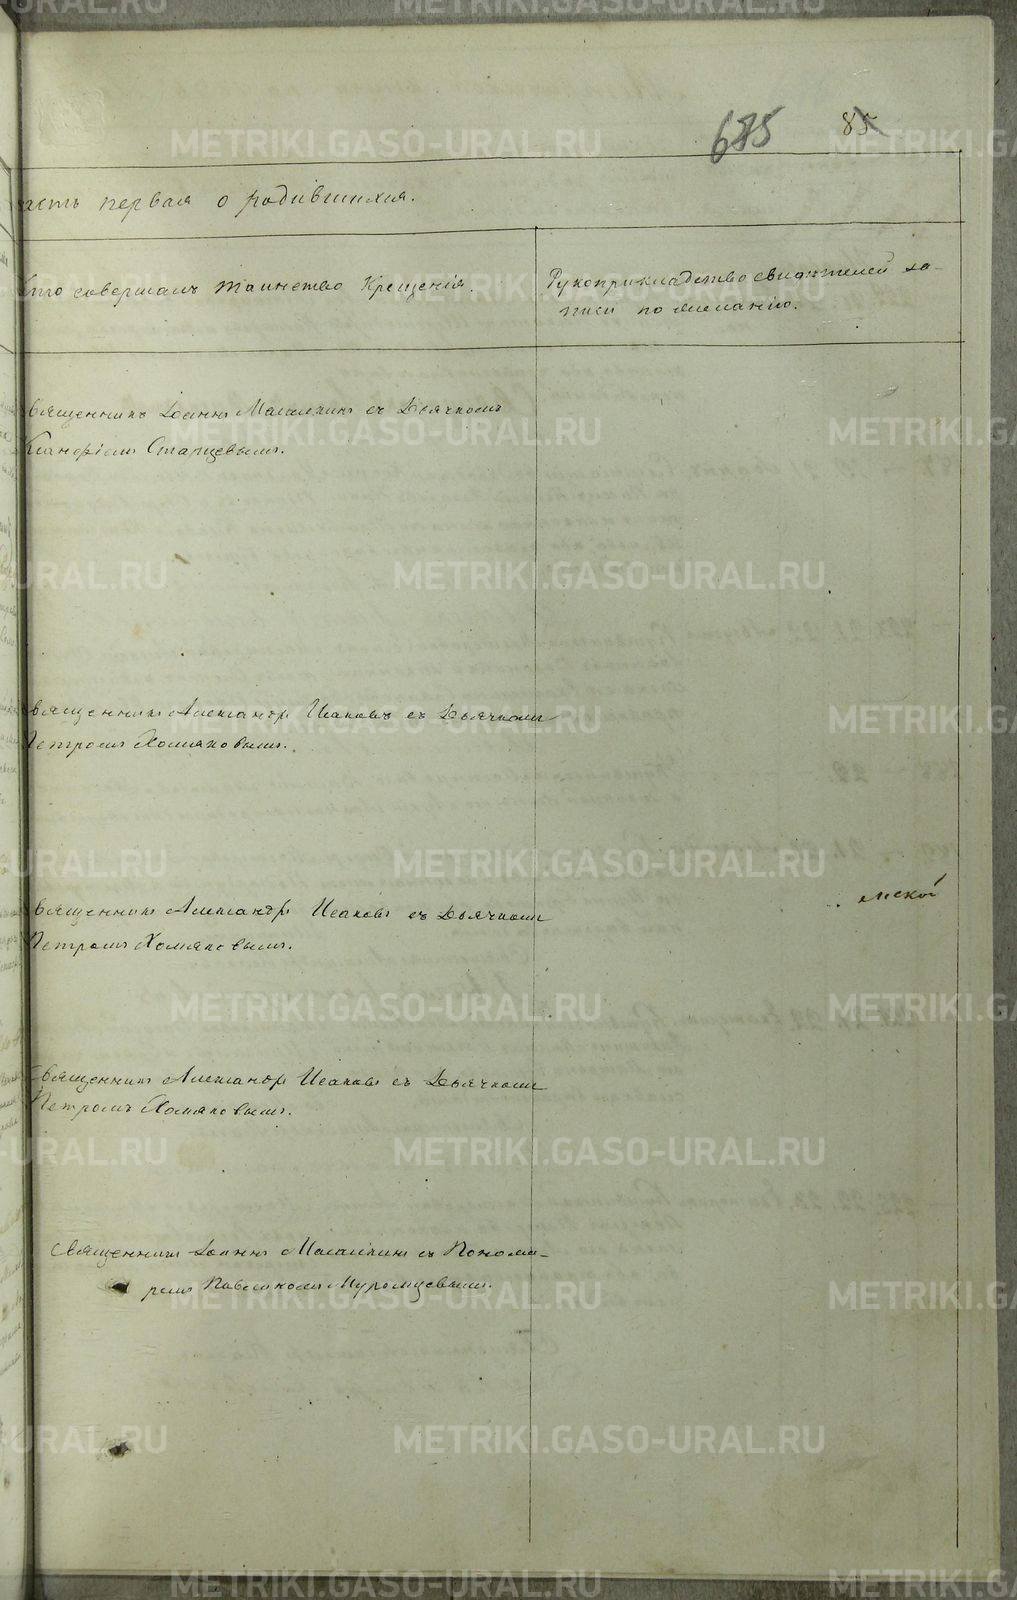 685 85
часть первая о родившихся.
Кто совершалъ таинство Крещенія.
Рукоприкладство свидѣтелей за-
писи по желанію.
Священникъ Іоаннъ с Дьячкомъ
Старцевымъ.
Священникъ Александръ Исаковъ съ Дьячкомъ
Петромъ Хомяковымъ.
Священникъ Александръ Исаковъ съ Дьячкомъ
Петромъ Хомяковымъ.
Священникъ Александръ Исаковъ съ Дьячкомъ
Петромъ Хомяковымъ.
Священникъ Іоаннъ съ Понома-
ремъ Муромцевымъ.
METRIKI.GASO-URAL.RU